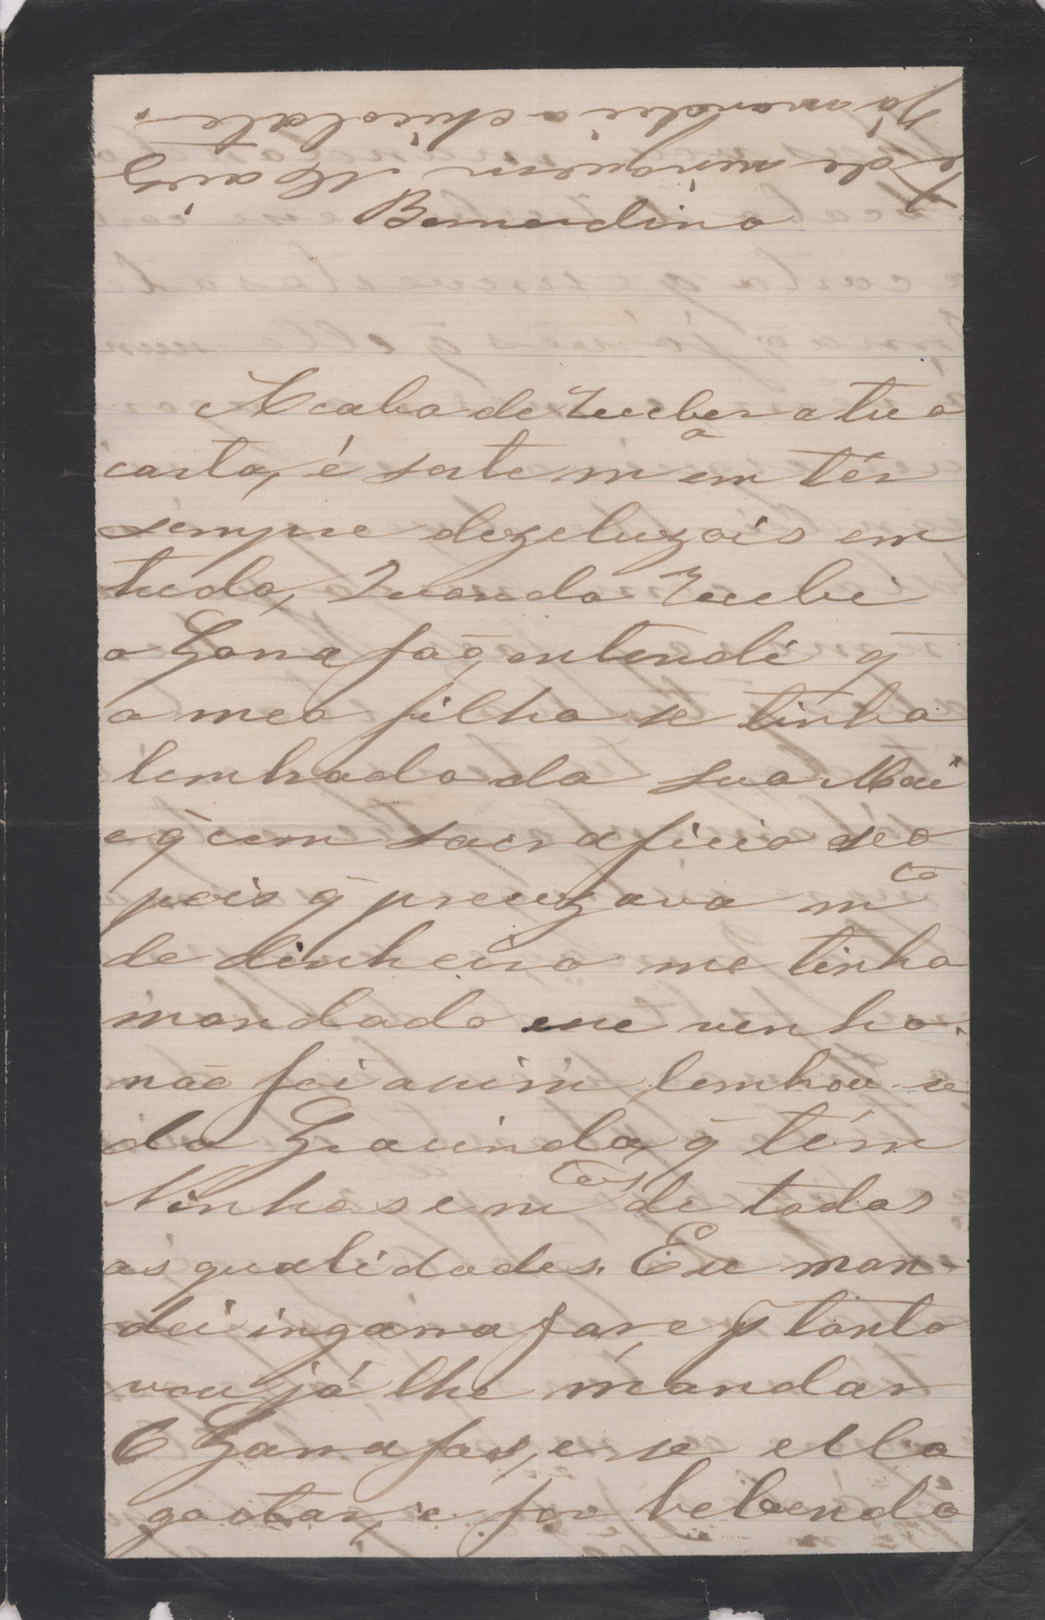 Já mandei a chicolate
e de ninguem Mais
Bernardino
Acabo de recber a tua
carta, é sorte m.a em têr
sempre dezeluzois em
tudo, Quando recebi
o Garrafaõ, entendi q̃
o meo filho se tinha
lembrado da sua Mai
e q̃ com sacraficio seo
pois q̃ precuzava m.to
de dinheiro me tinha
mandado esse venho.
não foi assim lembou-se
da Gracinda, q̃ têm
Vinhos em m.tos de todas
as qualidades. Eu man-
dei ingarrafar, e p tanto
vou já lhe mandar
6 Garrafas, e se ella
gostar, e for bebendo